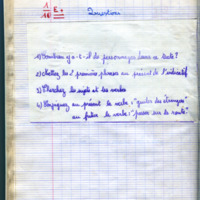 Questions
1) Combien y a-t-il de personnages dans ce texte ?
2) Mettez les 2 premières phrases au présent de l'indicatif
3) Cherchez le sujet et les verbes
4) Conjuguez au présent le verbe : "guider des étrangers"
au futur le verbe : "passer sur la route".